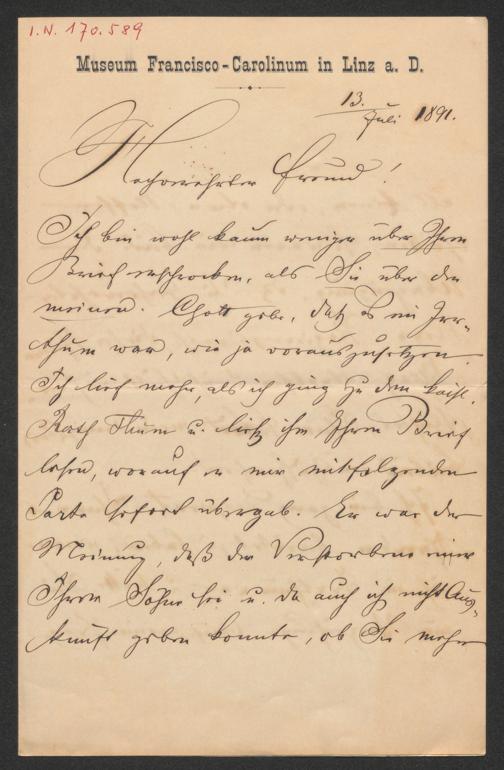 I.N. 170.589
Museum Francisco-Carolinum in Linz a. D.
13.
Juli 1891.
Hochverehrter Freund!
Ich bin wohl kaum weniger über Ihren
Brief erschrocken, als Sie über den
meinen. Gott gebe, daß es ein Irr-
thum war, wie ja vorauszusetzen.
Ich lief mehr, als ich ging zu dem kaisl.
Rath Thum u. ließ ihn Ihren Brief
lesen, worauf er mir mitfolgenden
Parte sofort übergab. Er war der
Meinung, daß der Verstorbene einer
Ihrer Söhne sei u. da auch ich nicht Aus-
kunft geben konnte, ob Sie mehre